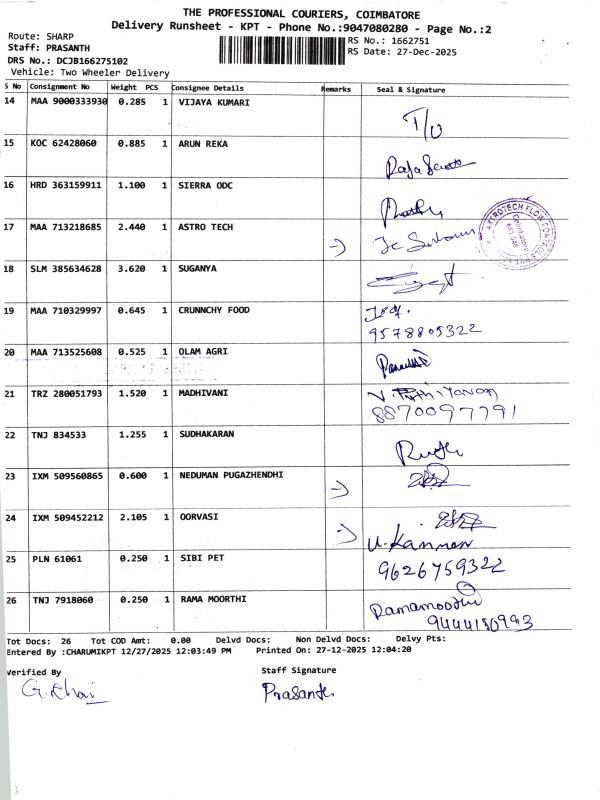 THE PROFESSIONAL COURIERS, COIMBATORE
Delivery Runsheet - KPT - Phone No.:9047080280 - Page No.:2
Route: SHARP
RS No.: 1662751
Staff: PRASANTH
RS Date: 27-Dec-2025
DRS No.: DCJB166275102
Vehicle: Two Wheeler Delivery
S No Consignment No Weight PCS Consignee Details Remarks Seal & Signature
14 MAA 9000333930 0.285 1 VIJAYA KUMARI
T/O
15 KOC 62428060 0.885 1 ARUN REKA
16 HRD 363159911 1.100 1 SIERRA ODC
17 MAA 713218685 2.440 1 ASTRO TECH
18 SLM 385634628 3.620 1 SUGANYA
19 MAA 710329997 0.645 1 CRUNNCHY FOOD
9578805322
20 MAA 713525608 0.525 1 OLAM AGRI
21 TRZ 280051793 1.520 1 MADHIVANI
8870097791
22 TNJ 834533 1.255 1 SUDHAKARAN
23 IXM 509560865 0.600 1 NEDUMAN PUGAZHENDHI
24 IXM 509452212 2.105 1 OORVASI
U.Kannan
25 PLN 61061 0.250 1 SIBI PET
9626759322
26 TNJ 7918060 0.250 1 RAMA MOORTHI
Ramamoorthi
9444180993
Tot Docs: 26 Tot COD Amt: 0.00 Delvd Docs: Non Delvd Docs: Delvy Pts:
Entered By :CHARUMIKPT 12/27/2025 12:03:49 PM Printed On: 27-12-2025 12:04:20
Verified By
Staff Signature
Prasanth.